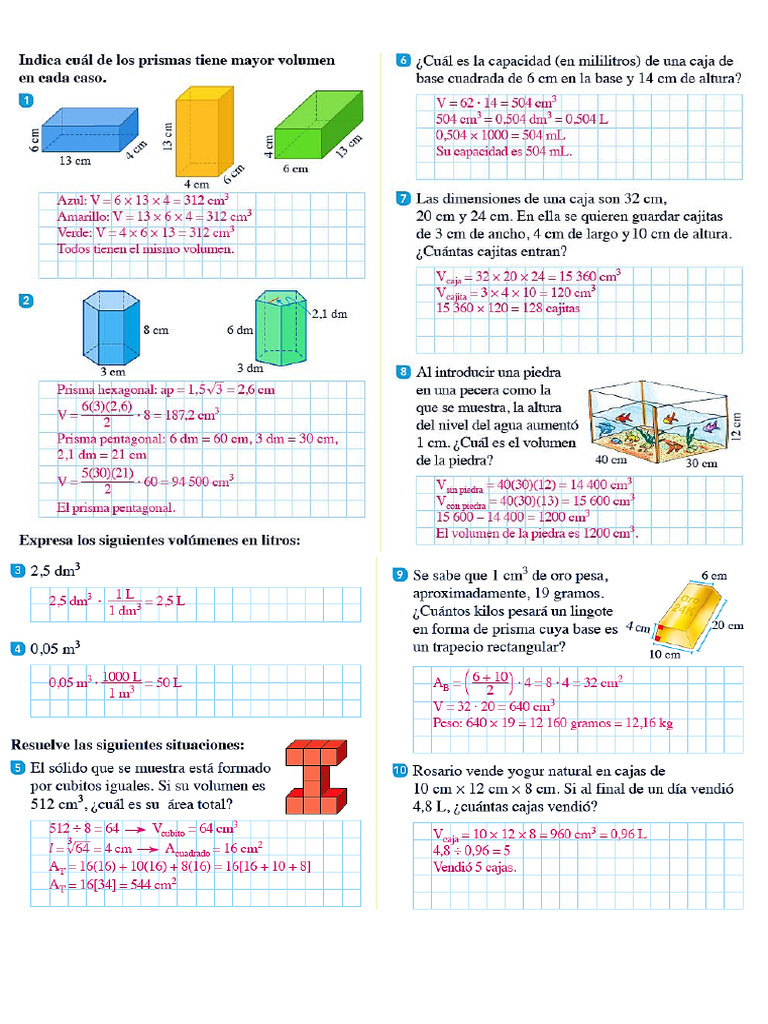 Indica cuál de los prismas tiene mayor volumen
en cada caso.
1
6 cm
13 cm
4 cm
13 cm
4 cm
6 cm
4 cm
6 cm
13 cm
Azul: V = 6 × 13 × 4 = 312 cm³
Amarillo: V = 13 × 6 × 4 = 312 cm³
Verde: V = 4 × 6 × 13 = 312 cm³
Todos tienen el mismo volumen.
2
8 cm
3 cm
6 dm
2,1 dm
3 dm
Prisma hexagonal: ap = 1,5√3 = 2,6 cm
V = 6(3)(2,6)/2 · 8 = 187,2 cm³
Prisma pentagonal: 6 dm = 60 cm, 3 dm = 30 cm,
2,1 dm = 21 cm
V = 5(30)(21)/2 · 60 = 94 500 cm³
El prisma pentagonal.
Expresa los siguientes volúmenes en litros:
3 2,5 dm³
2,5 dm³ · 1 L/1 dm³ = 2,5 L
4 0,05 m³
0,05 m³ · 1000 L/1 m³ = 50 L
Resuelve las siguientes situaciones:
5 El sólido que se muestra está formado
por cubitos iguales. Si su volumen es
512 cm³, ¿cuál es su área total?
512 ÷ 8 = 64 → V cubito = 64 cm³
l = ∛64 = 4 cm → A cuadrado = 16 cm²
A_T = 16(16) + 10(16) + 8(16) = 16[16 + 10 + 8]
A_T = 16[34] = 544 cm²
6 ¿Cuál es la capacidad (en mililitros) de una caja de
base cuadrada de 6 cm en la base y 14 cm de altura?
V = 62 · 14 = 504 cm³
504 cm³ = 0,504 dm³ = 0,504 L
0,504 × 1000 = 504 mL
Su capacidad es 504 mL.
7 Las dimensiones de una caja son 32 cm,
20 cm y 24 cm. En ella se quieren guardar cajitas
de 3 cm de ancho, 4 cm de largo y 10 cm de altura.
¿Cuántas cajitas entran?
V caja = 32 × 20 × 24 = 15 360 cm³
V cajita = 3 × 4 × 10 = 120 cm³
15 360 × 120 = 128 cajitas
8 Al introducir una piedra
en una pecera como la
que se muestra, la altura
del nivel del agua aumentó
1 cm. ¿Cuál es el volumen
de la piedra?
12 cm
40 cm
30 cm
V sin piedra = 40(30)(12) = 14 400 cm³
V con piedra = 40(30)(13) = 15 600 cm³
15 600 – 14 400 = 1200 cm³
El volumen de la piedra es 1200 cm³.
9 Se sabe que 1 cm³ de oro pesa,
aproximadamente, 19 gramos.
¿Cuántos kilos pesará un lingote
en forma de prisma cuya base es
un trapecio rectangular?
6 cm
Oro
24K
4 cm
20 cm
10 cm
A_B = (6 + 10/2) · 4 = 8 · 4 = 32 cm²
V = 32 · 20 = 640 cm³
Peso: 640 × 19 = 12 160 gramos = 12,16 kg
10 Rosario vende yogur natural en cajas de
10 cm × 12 cm × 8 cm. Si al final de un día vendió
4,8 L, ¿cuántas cajas vendió?
V caja = 10 × 12 × 8 = 960 cm³ = 0,96 L
4,8 ÷ 0,96 = 5
Vendió 5 cajas.